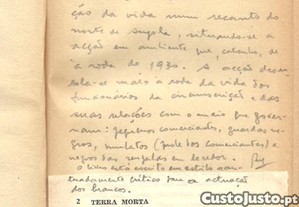 ção da vida num recanto do
norte de Angola, situando-se a
acção em ambiente que, calculo, de
à roda de 1930. A acção desen-
rola-se mais à roda da vida dos
funcionários da circunscrição e das
suas relações com o mais que gover-
nam: pequenos comerciantes, guardas ne-
gros, mulatos (prole dos comerciantes) e
negros das senzalas em redor.
O livro está escrito em estilo acen-
tuadamente crítico para a actuação
dos brancos.
2 TERRA MORTA
CustoJusto.pt